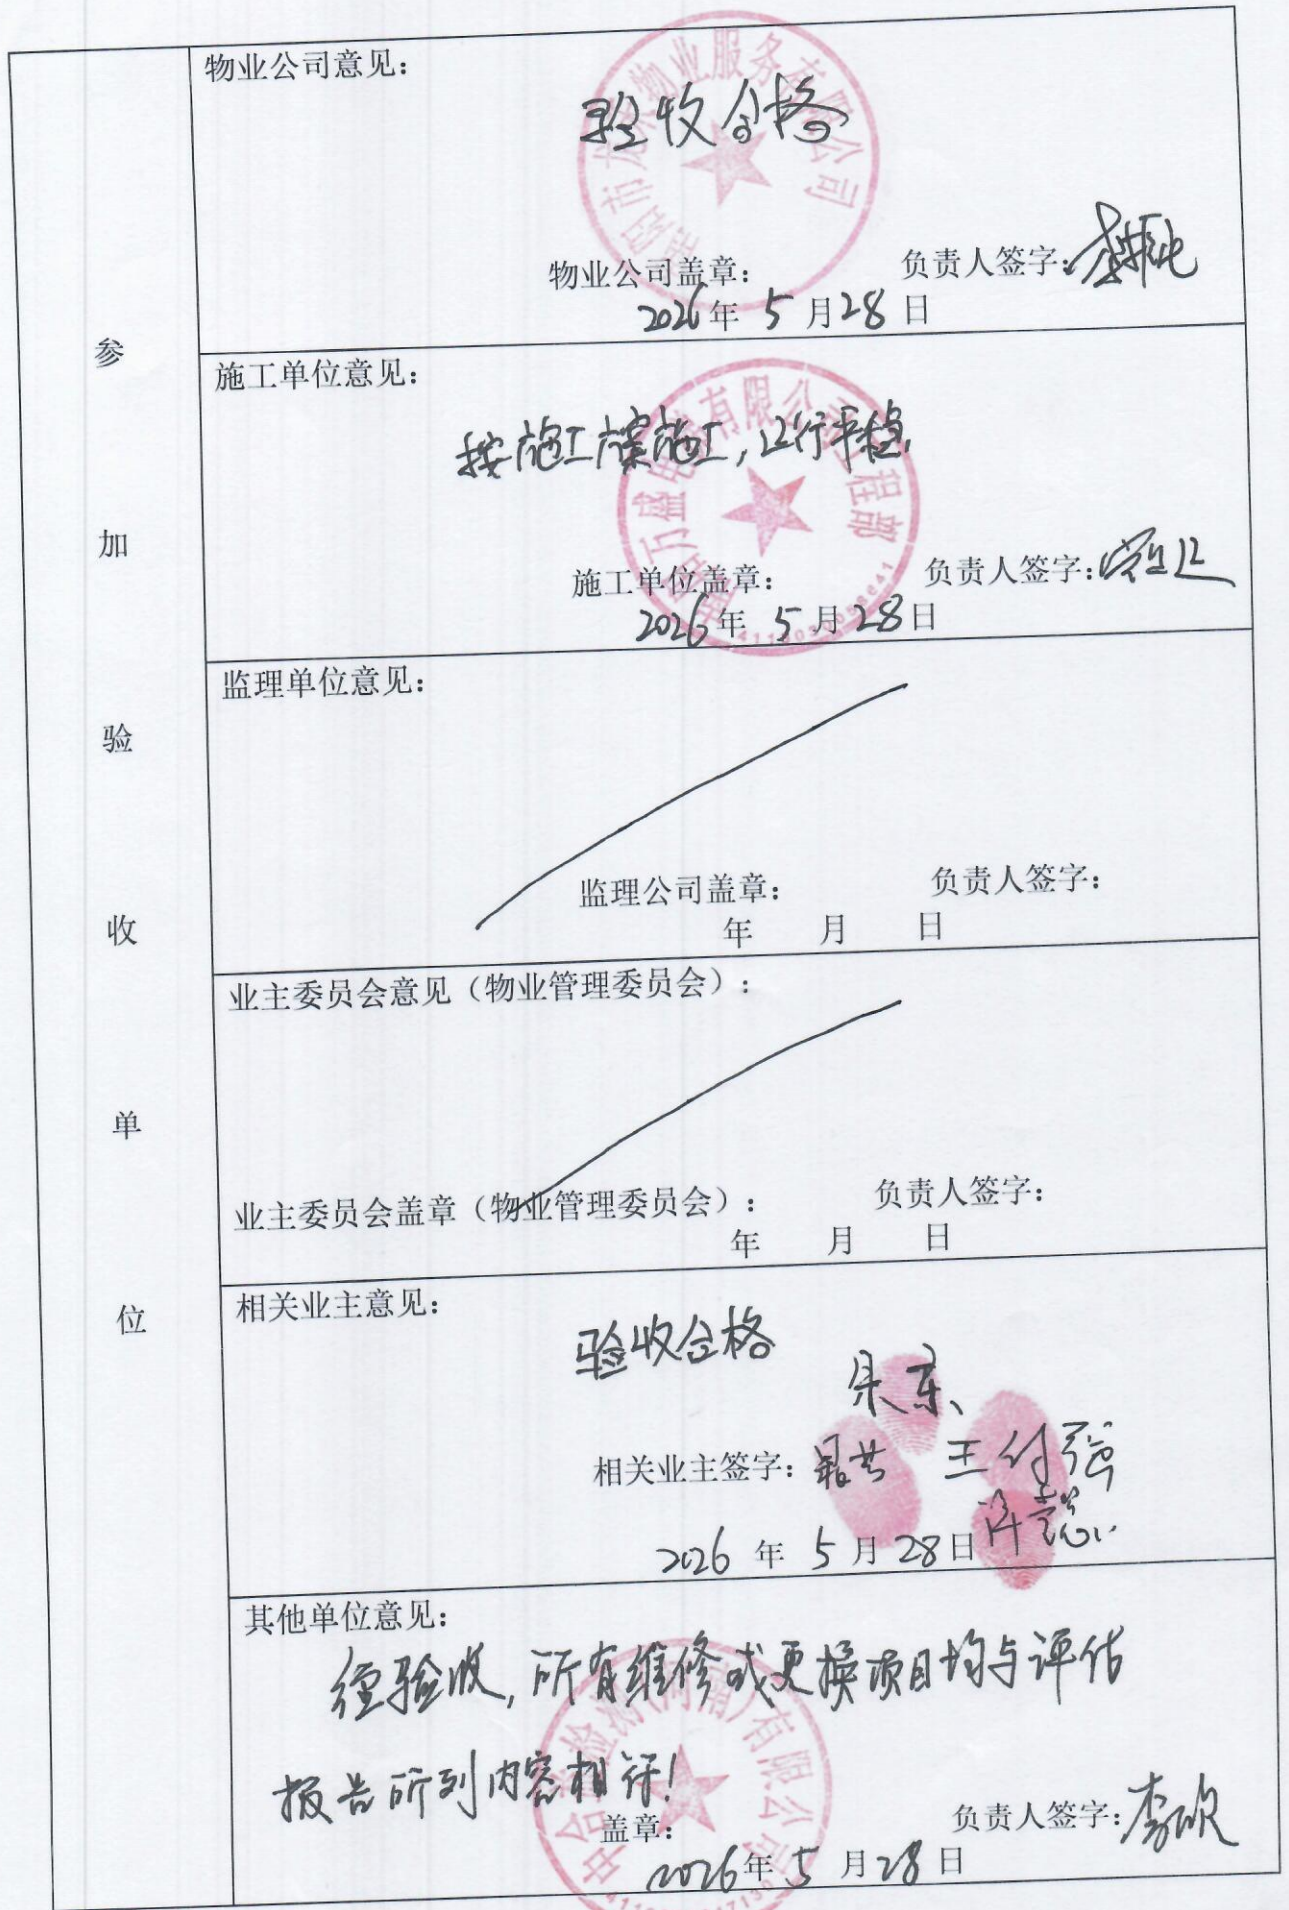 参加验收单位
物业公司意见：
验收合格
物业服务有限公司
物业公司盖章：
负责人签字：
2026年 5 月 28 日
施工单位意见：
按施工方案施工，运行平稳。
万盛电梯有限公司工程部
施工单位盖章：
负责人签字：
2026年 5 月 28 日
监理单位意见：
监理公司盖章：
负责人签字：
年 月 日
业主委员会意见（物业管理委员会）：
业主委员会盖章（物业管理委员会）：
负责人签字：
年 月 日
相关业主意见：
验收合格
朱东、
相关业主签字： 王付强
2026 年 5 月 28 日
其他单位意见：
经验收，所有维修或更换项目均与评估
报告所列内容相符！
检测（河南）有限公司
盖章：
负责人签字：李欣
2026年 5 月 28 日